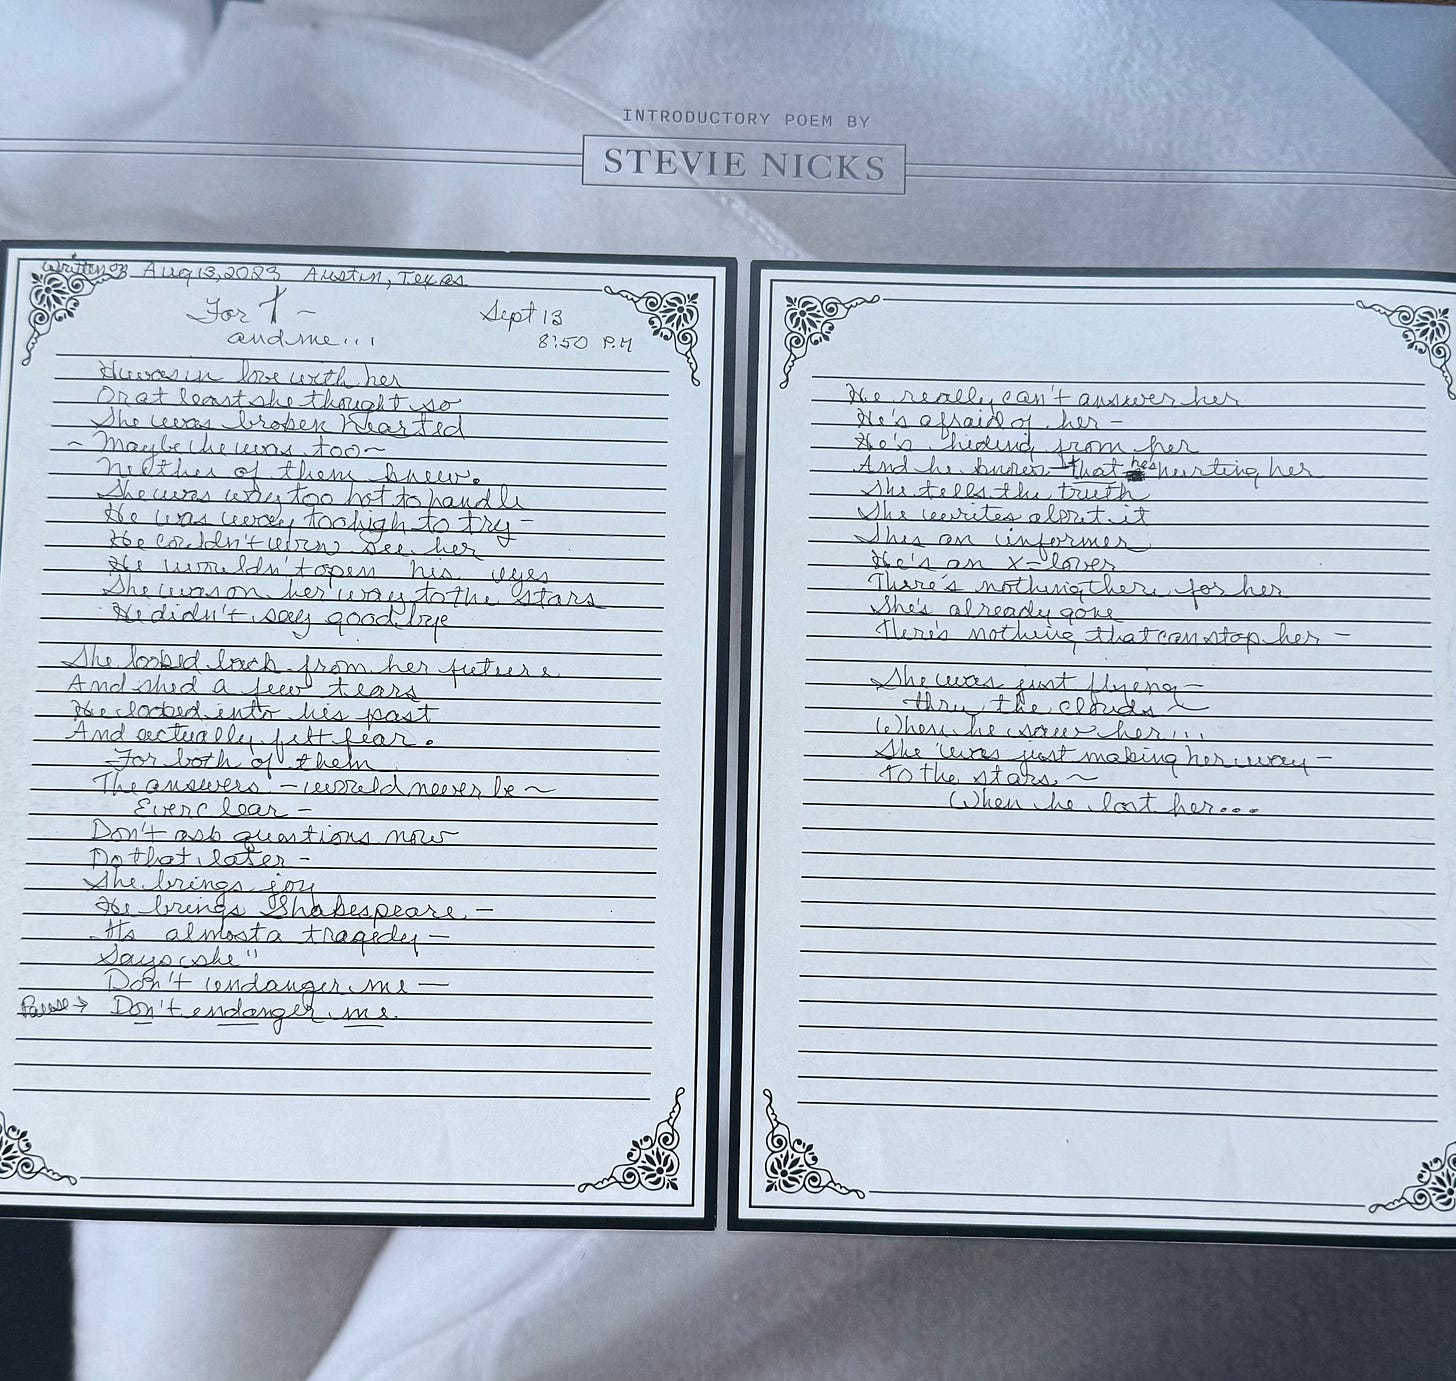 INTRODUCTORY POEM BY
STEVIE NICKS
Written Aug 13, 2023 Austin, Texas
For T ~
and me...
Sept 13
8:50 P.M
He was in love with her
Or at least she thought so
She was broken hearted
~ Maybe he was too ~
Neither of them knew.
She was way too hot to handle
He was way too high to try -
He couldn't even see her
He wouldn't open his eyes
She was on her way to the stars
He didn't say goodbye
She looked back from her future
And shed a few tears
He looked into his past
And actually felt fear.
For both of them
The answers - would never be ~
Ever clear -
Don't ask questions now
Do that later -
She brings joy
He brings Shakespeare. -
It's almost a tragedy -
Says she"
Don't endanger me —
Pause → Don't endanger me.
He really can't answer her
He's afraid of her -
He's hiding from her
And he knows that he's hurting her
She tells the truth
She writes about it
She's an informer
He's an x-lover
There's nothing there for her
She's already gone
There's nothing that can stop her -
She was just flyeng -
thru the clouds ~
When he saw her...
She was just making her way -
to the stars. ~
When he lost her...